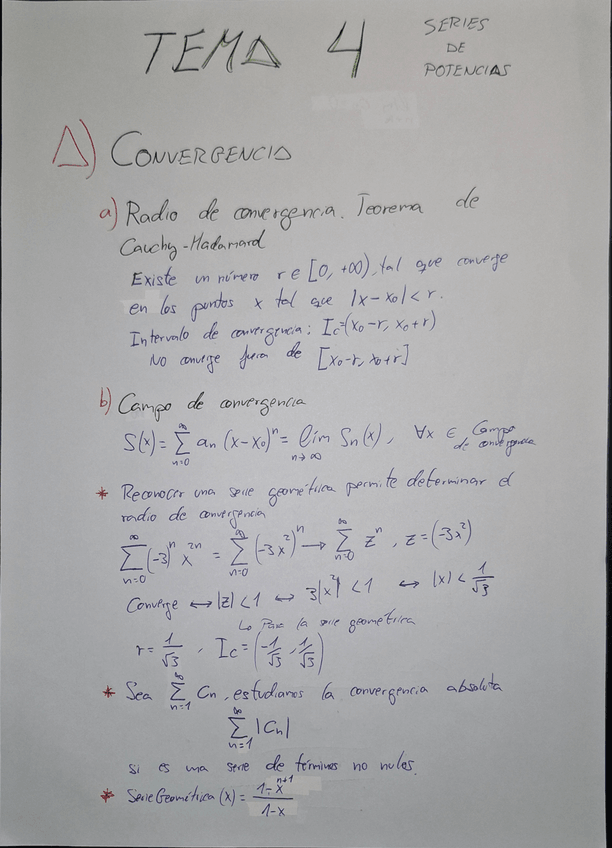 TEMA 4
SERIES
DE
POTENCIAS
A) CONVERGENCIA
a) Radio de convergencia. Teorema de
Cauchy-Hadamard
Existe un número r ∈ [0, +∞), tal que converge
en los puntos x tal que |x-x₀| < r.
Intervalo de convergencia: Ic=(x₀-r, x₀+r)
No converge fuera de [x₀-r, x₀+r]
b) Campo de convergencia
S(x) = ∑_{n=0}^{∞} an (x-x₀)ⁿ = lím_{n→∞} Sn(x), ∀x ∈ Campo
de convergencia
* Reconocer una serie geométrica permite determinar el
radio de convergencia
∑_{n=0}^{∞} (-3)ⁿ x²ⁿ = ∑_{n=0}^{∞} (-3x²)ⁿ → ∑_{n=0}^{∞} zⁿ, z=(-3x²)
Converge ↔ |z| < 1 ↔ 3|x²| < 1 ↔ |x| < 1/√3
↳ Para la serie geométrica
r = 1/√3, Ic = (-1/√3, 1/√3)
* Sea ∑_{n=1}^{∞} Cn, estudiamos la convergencia absoluta
∑_{n=1}^{∞} |Cn|
si es una serie de términos no nulos.
* SerieGeométrica (x) = (1-x^{n+1})/(1-x)